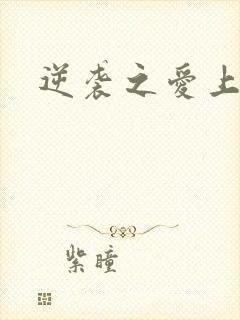 逆袭之愛上
紫瞳